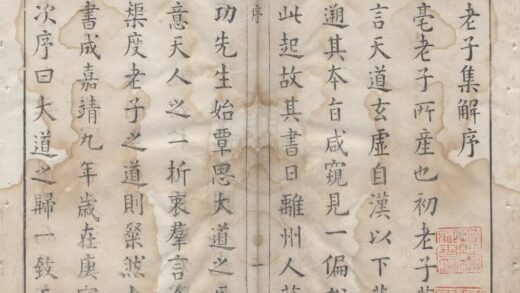 老子集解序
亳老子所産也初老子著
言天道玄虚自漢以下
遡其夲旨咸窺見一偏
此起故其書日離州人薛
序
一
功先生始覃思大道之
意天人之折衷羣言
渠度老子之道則粲然
書成嘉靖九年歲在庚
次序曰大道之歸一致